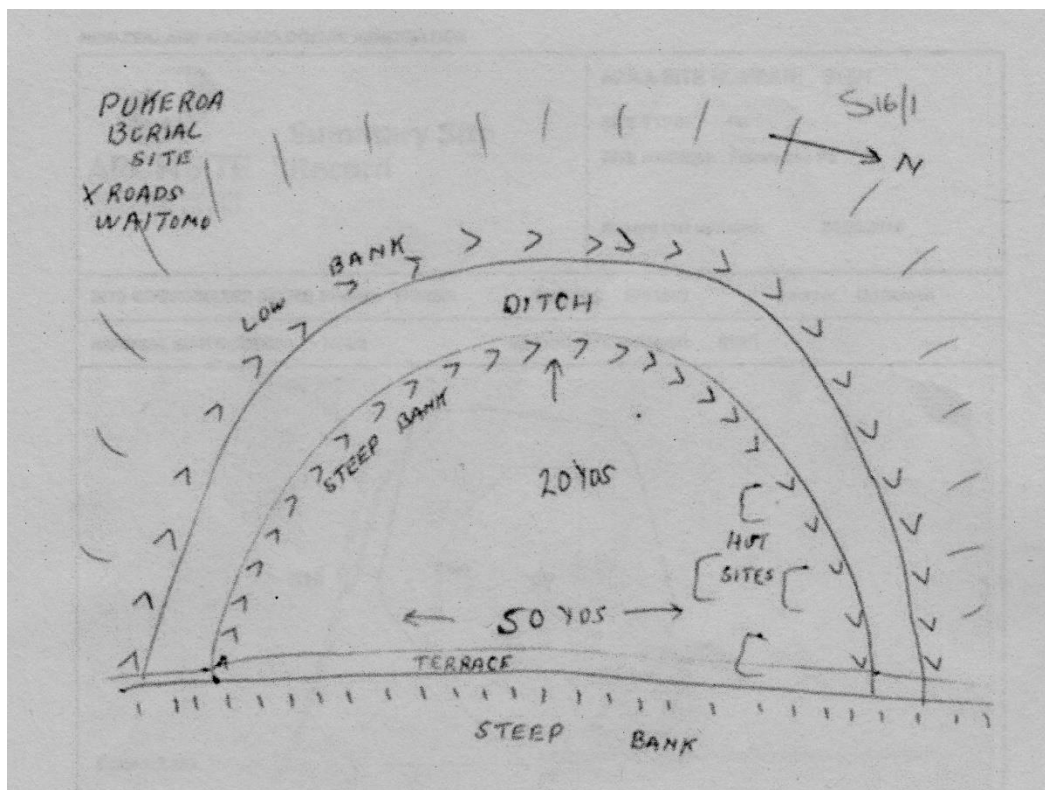 PUKEROA
BERIAL
SITE
X ROADS
WAITOMO
S16/1
N
LOW BANK
DITCH
STEEP BANK
20 YDS
HUT
SITES
50 YDS
TERRACE
STEEP BANK